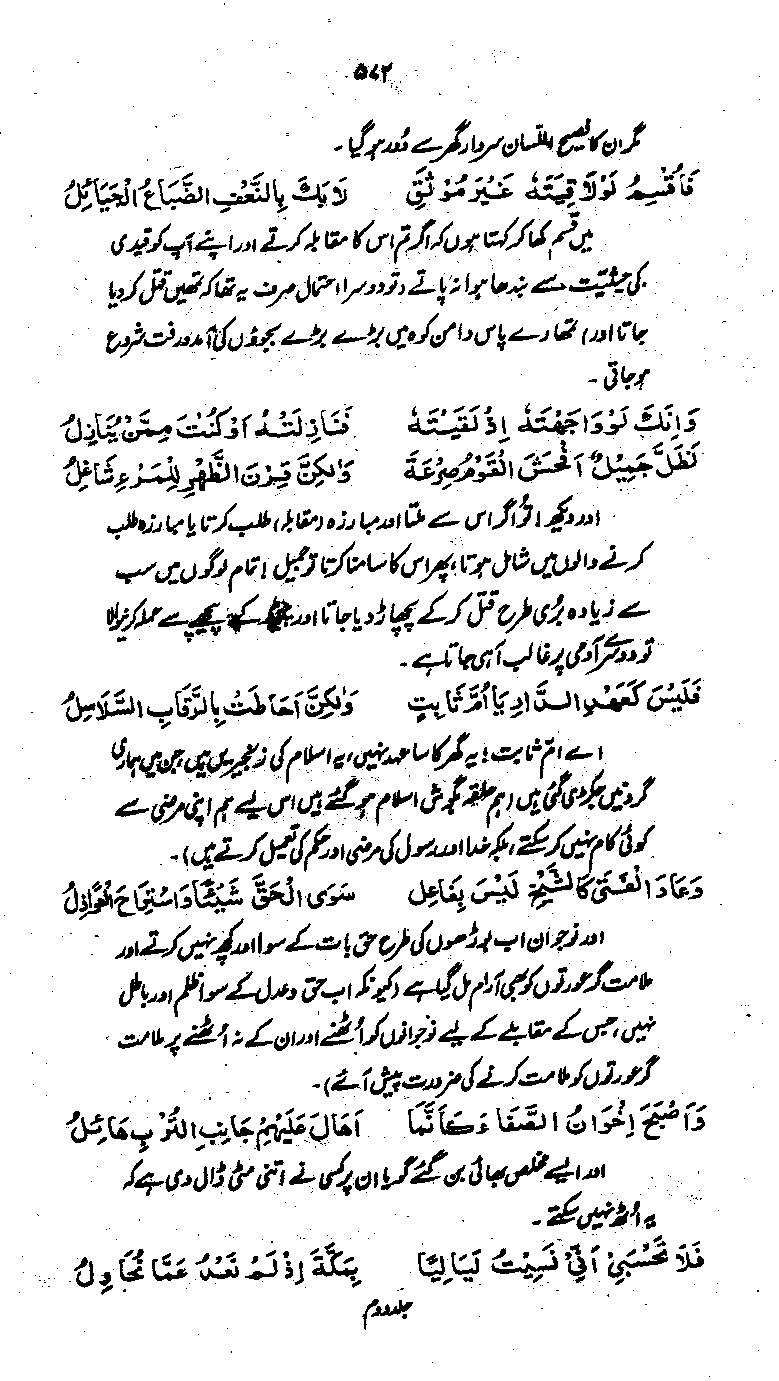 ۵۷۲
مگر ان کا فصیح اللسان سردار گھر سے دُور ہو گیا۔
فَأُقْسِمُ لَوْلَاقَيْتَهٗ غَيْرَ مُوْثَقٍ لَاٰبَكَ بِالنَّعْفِ الضِّبَاعُ الْجَيَائِلُ
میں قسم کھا کر کہتا ہوں کہ اگر تم اس کا مقابلہ کرتے اور اپنے آپ کو قیدی
کی حیثیت سے بندھا ہوا نہ پاتے (تو دوسرا احتمال صرف یہ تھا کہ تمھیں قتل کر دیا
جاتا اور) تمھارے پاس دامن کوہ میں بڑے بڑے بجوؤں کی آمد و رفت شروع
ہو جاتی۔
وَإِنَّكَ لَوْ وَاجَهْتَهٗ إِذْ لَقِيْتَهٗ فَنَازَلْتَهٗ أَوْ كُنْتَ مِمَّنْ يُنَازِلُ
لَظَلَّ جَمِيْلٌ أَفْحَشَ الْقَوْمِ صِرْعَةً وَلٰكِنَّ قِرْنَ الظَّهْرِ لِلْمَرْءِ شَاغِلُ
اور دیکھ! تو اگر اس سے ملتا اور مبارزہ (مقابلہ) طلب کرتا یا مبارزہ طلب
کرنے والوں میں شامل ہوتا، پھر اس کا سامنا کرتا تو جمیل (تمام لوگوں میں سب
سے زیادہ بُری طرح قتل کر کے پچھاڑ دیا جاتا اور پیچھے سے حملہ کرنیوالا
تو دوسرے آدمی پر غالب آ ہی جاتا ہے۔
فَلَيْسَ كَعَهْدِ الدَّارِ يَا أُمَّ ثَابِتٍ وَلٰكِنْ أَحَاطَتْ بِالرِّقَابِ السَّلَاسِلُ
اے امّ ثابت! یہ گھر کا سا عہد نہیں، یہ اسلام کی زنجیریں ہیں، جن میں ہماری
گردنیں جکڑی گئی ہیں (ہم حلقہ بگوش اسلام ہو گئے ہیں اس لیے ہم اپنی مرضی سے
کوئی کام نہیں کر سکتے، بلکہ خدا اور رسول کی مرضی اور حکم کی تعمیل کرتے ہیں)۔
وَعَادَ الْفَتٰى كَالشَّيْخِ لَيْسَ بِفَاعِلٍ سَوَى الْحَقِّ شَيْئًا وَاسْتَرَاحَ الْعَوَاذِلُ
اور نوجوان اب بوڑھوں کی طرح حق بات کے سوا اور کچھ نہیں کرتے اور
ملامت گر عورتوں کو بھی آرام مل گیا ہے (کیونکہ اب حق و عدل کے سوا ظلم اور باطل
نہیں، جس کے مقابلے کے لیے نوجوانوں کو اُٹھنے اور ان کے نہ اُٹھنے پر ملامت
گر عورتوں کو ملامت کرنے کی ضرورت پیش آئے)۔
وَأَصْبَحَ إِخْوَانُ الصَّفَاءِ كَأَنَّمَا أَهَالَ عَلَيْهِمْ جَانِبَ التُّرْبِ هَائِلُ
اور ایسے مخلص بھائی بن گئے گویا ان پر کسی نے اتنی مٹی ڈال دی ہے کہ
یہ اُٹھ نہیں سکتے۔
فَلَا تَحْسَبِيْ أَنِّيْ نَسِيْتُ لَيَالِيًا بِمَكَّةَ إِذْ لَمْ نَعْدُ عَمَّا نُحَاوِلُ
جلد دوم